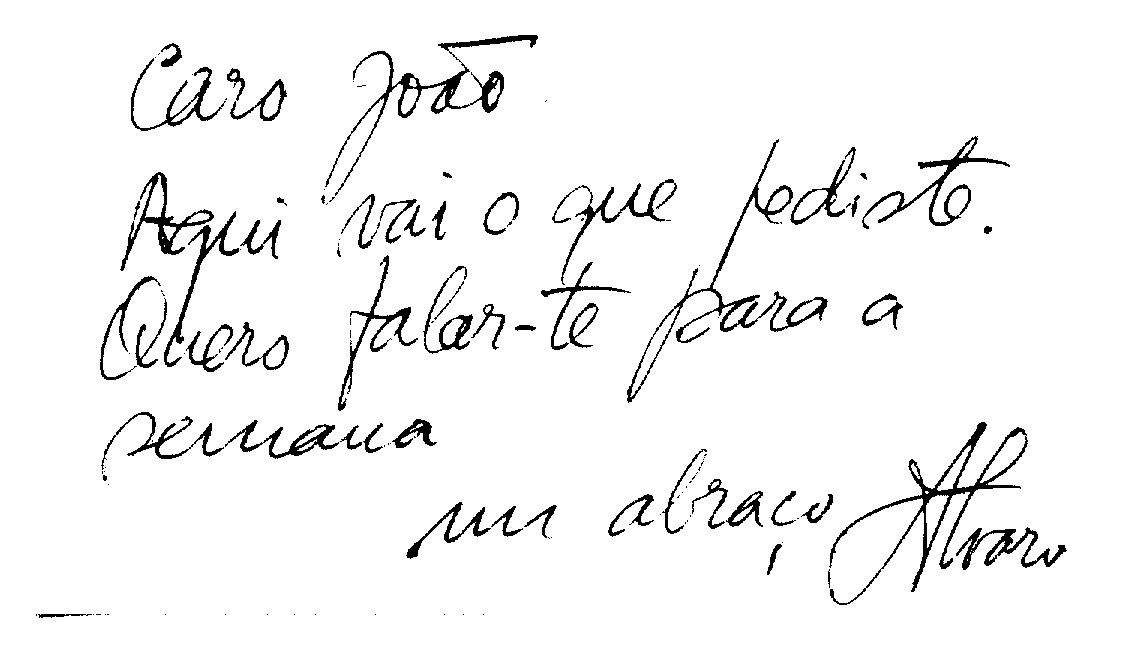 Caro João
Aqui vai o que pediste.
Quero falar-te para a
semana
um abraço Alvaro